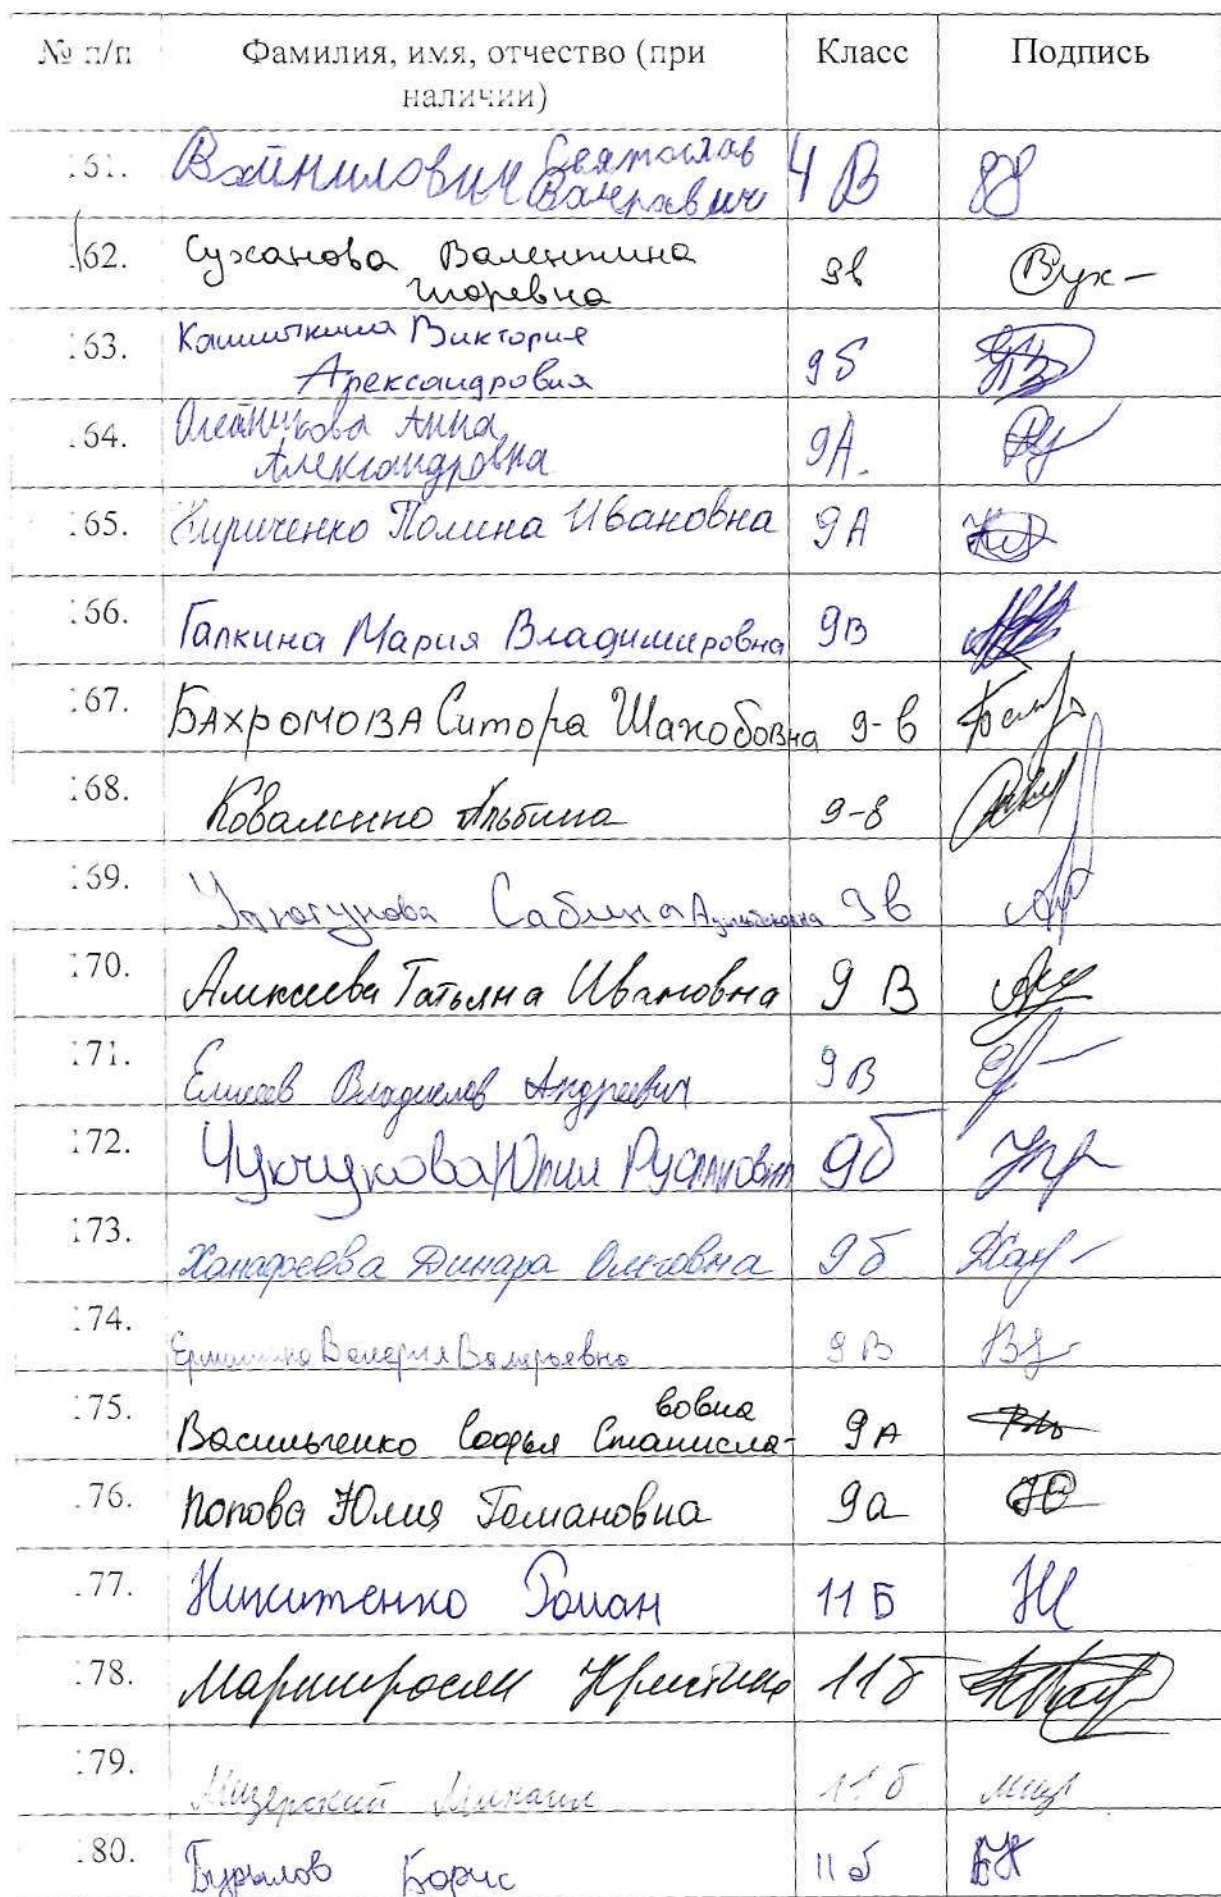 № п/п Фамилия, имя, отчество (при наличии) Класс Подпись
161. Войнилович Святослав Валерьевич 4 В
162. Суханова Валентина Игоревна 9в
163. Виктория Александровна 9б
164. Олейникова Анна Александровна 9А.
165. Кириченко Полина Ивановна 9А
166. Галкина Мария Владимировна 9В
167. БАХРОМОВА Ситора Шахобовна 9-в
168. Альбина 9-в
169. Сабина 9в
170. Алексеева Татьяна Ивановна 9 В
171. Елисеев Владислав Андреевич 9В
172. Чукчукова Юлия Руслановна 9б
173. Ханафеева Динара Олеговна 9б
174. Валерия Валерьевна 9В
175. Васильченко Софья Станиславовна 9А
176. Попова Юлия Романовна 9а
177. Никитенко Роман 11 Б
178. Мартиросян Кристина 11б
179. Мизерский Михаил 11б
180. Бурылов Борис 11б